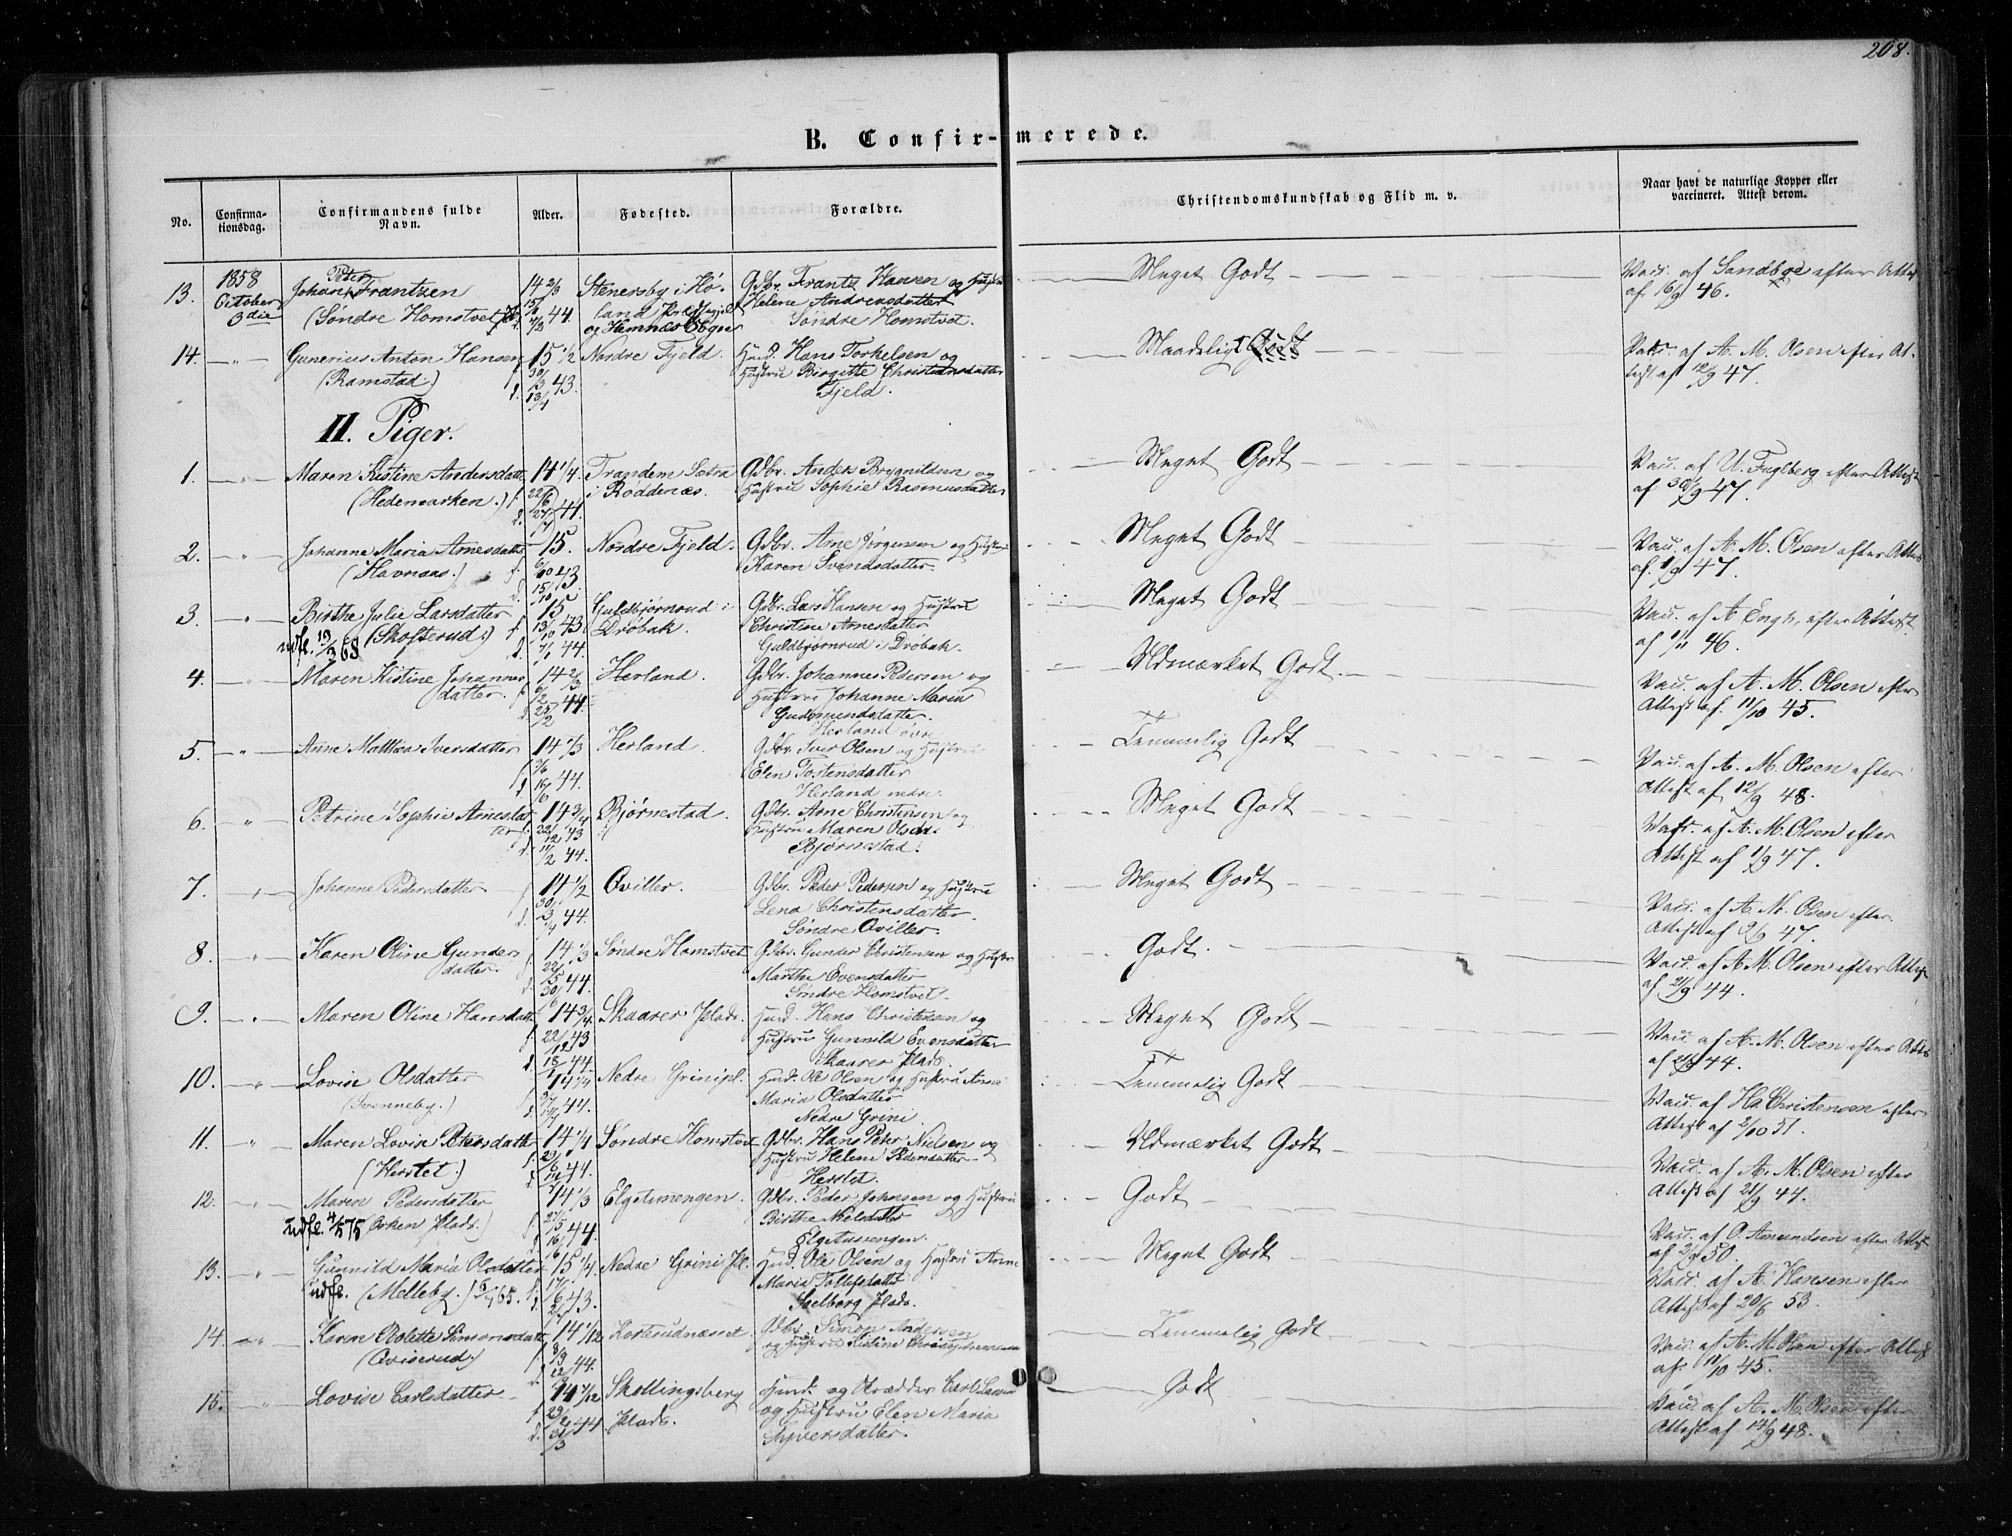 208.
B. Confirmerede.
No.
Confirmationsdag.
Confirmandens fulde Navn.
Alder.
Fødested.
Forældre.
Christendomskundskab og Flid m. v.
Naar havt de naturlige Kopper eller vaccineret. Attest derom.
13. 1858 October 3die Johan Peter Frantzen (Søndre Homstvet 14 2/3 44. Stenersby i Høland Præstegjeld og Hemnes Sogn Gdbr. Frantz Hansen og Hustru Helene Andreasdatter Søndre Homstvet. Meget Godt Vacc. af Sandboe efter Attest af 16/9 46.
14. -"- Gunerius Anton Hansen (Ramstad) 15 1/2 30/3 43. 13/4 Nordre Fjeld. Huusmd. Hans Torkelsen og Hustru Birgitte Christensdatter Fjeld. Maadeligt Godt Vacc. af A. M. Olsen efter Attest af 12/9 47.
II. Piger.
1. -"- Maren Kistine Andersdatter (Hedemarken.) 14 1/4. 22/6 27/7 44. Trandem Sætra i Røddenæs. Gdbr. Anders Brynildsen og Hustru Sophie Rasmusdatter Meget Godt Vacc. af U. Fuglberg efter Attest af 30/9 47.
2. -"- Johanne Maria Arnesdatter (Havnaas.) 15. 6/10 43 15/10 Nordre Fjeld. Gdbr. Arne Jørgensen og Hustru Karen Svendsdatter. Meget Godt Vacc. af A. M. Olsen efter Attest af 1/9 47.
3. -"- Birthe Julie Larsdatter udfl. 19/3 68 (Skofterud) 15 13/10 43 7/1 44. Guldbjørnrud i Drøbak. Gdbr. Lars Hansen og Hustru Christine Arnesdatter Guldbjørnrud i Drøbak. Meget Godt Vacc. af A Engh, efter Attest af 1/11 46.
4. -"- Maren Kistine Johannesdatter. 14 2/3 6/2 25/2 44. Herland. Gdbr. Johannes Pedersen og Hustru Johanne Maria Gudmundsdatter. Herland øvre Udmærket Godt. Vacc. af A. M. Olsen efter Attest af 11/10 45.
5. -"- Anne Mathea Iversdatter 14 1/3 44. Herland. Gdbr. Iver Olsen og Hustru Elen Tostensdatter Herland nedre. Temmelig Godt Vacc. af A. M. Olsen efter Attest af 12/9 48.
6. " Petrine Sophie Arnesdatter 14 3/4 22/12 43 11/2 44. Bjørnestad. Gdbr. Arne Christensen og Hustru Maren Olsdr. Bjørnestad. Meget Godt Vacc. af A. M. Olsen efter Attest af 1/9 47.
7. " Johanne Pedersdatter 14 1/2 30/3 44. Qviller. Gdbr. Peder Pedersen og Hustru Lena Christensdatter. Søndre Qviller. Meget Godt Vacc. af A. M. Olsen efter Attest af 9/9 47.
8. -"- Karen Oline Gundersdatter. 14 1/3 22/5 30/ 44. Søndre Homstvet Gdbr. Gunder Christensen og Hustru Marthe Evensdatter Søndre Homstvet. Godt. Vacc. af A. M. Olsen efter Attest af 21/9 44.
9. -"- Maren Oline Hansdatter 14 3/4. 22/12 43 18/ 44. Skaarer Plads. Huusmd. Hans Christensen og Hustru Gunnild Evensdatter Skaarer Plads. Meget Godt Vacc. af A. M. Olsen efter Attest af 21/9 44.
10. -"- Lovise Olsdatter (Svenneby.) 14 1/2 44. Nedre Grinipl. Huusmd. Ole Olsen og Hustru Anne Maria Olsdatter Nedre Grini. Temmelig Godt Vacc. af Hs. Christensen efter Attest af 2/10 51.
11. " Maren Lovise Petersdatter (Herstet.) 14 1/4 44. Søndre Homstvet Gdbr. Hans Peter Nielsen og Hustru Helene Pedersdatter Herstet. Udmærket Godt Vacc. af A. M. Olsen efter Attest af 21/9 44.
12. -"- Maren Pedersdatter udfl. 4/5 75 (Ørken Plads.) 14 1/3 27/5 16/6 44. Elgetsmengen. Gdbr. Peder Johnsen og Hustru Birthe Nielsdatter Elgetsmengen. Godt Vacc. af O. Amundsen efter Attest af 2/9 50.
13. -"- Gunnild Maria Olsdatter udfl. (Melleby.) 65. 15 1/4. 17/6 43. Nedre Grini Pl. Huusmd. Ole Olsen og Hustru Anne Maria Tollefsdatter Saelborg Plads. Meget Godt Vacc. af A. Hansen efter Attest af 20/6 53.
14. " Karen Bolette Simonsdatter (Qviserud.) 14 7/12 8/3 44. Kosterudnæset. Gdbr. Simon Andersen og Hustru Kistine Temmelig Godt Vacc. af A. M. Olsen efter Attest af 11/10 45.
15. " Lovise Carlsdatter 14 7/12 29/2 31/3 44 Skollingsberg Plads. Huusmd. og Skrædder Carl Larsen og Hustru Elen Maria Syversdatter. Godt Vacc. af A. M. Olsen efter Attest af 14/9 48.